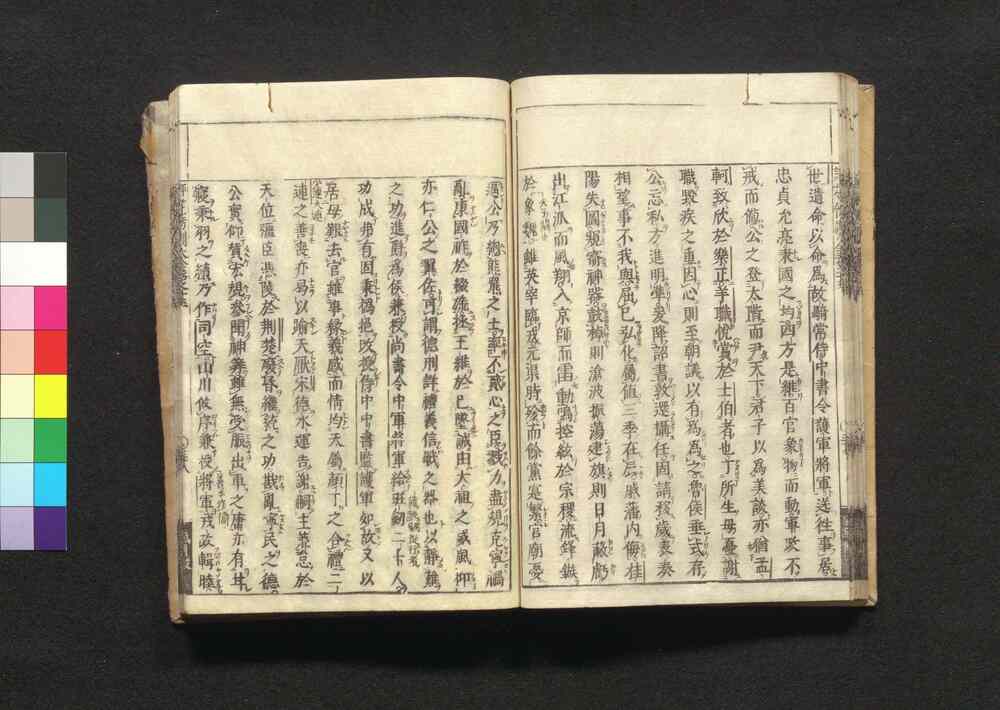 世遺命以命為故騎常侍中書令護軍將軍送往事居
忠貞允亮秉國之均四方是維百官象物而動軍政不
戒而備公之登太階而尹天下君子以為美談亦猶孟
軻致欣於樂正羊職悅賞於士伯者也丁所生母憂謝
職毀疾之重因心則至朝議以有為為之魯侯垂式存
公忘私方進明準爰降詔書敦還攝任固請移歲表奏
相望事不我與屈己弘化屬值三季在辰戚藩內侮桂
陽失圖窺窬神器鼓棹則滄波振蕩建旗則日月蔽虧
出江派而風翔入京師而雷動鳴控絃於宗稷流鋒鏃
於象魏雖英宰臨戎元渠時殄而餘黨寔繁宮廟憂
逼公乃總熊羆之士不貳心之臣戮力盡規克寧禍
亂康國祚於綴旒拯王維於已墜誠由太祖之威風抑
亦仁公之翼佐可謂德刑詳禮義信戰之器也以靜難
之功進爵為侯兼授尚書令中軍將軍給班劒二十人
功成弗有固秉撝挹改授侍中中書監護軍如故又以
居母艱去官雖事緣義感而情均天屬顏丁之合禮二
連之善喪亦曷以踰天厭宋德水運告謝嗣主荒怠於
天位彊臣憑陵於荊楚廢昏繼統之功戡亂寧民之德
公實仰贊宏規參聞神算雖無受脤出車之庸亦有甘
寢秉羽之績乃作司空山川攸序兼授將軍戎政輯睦